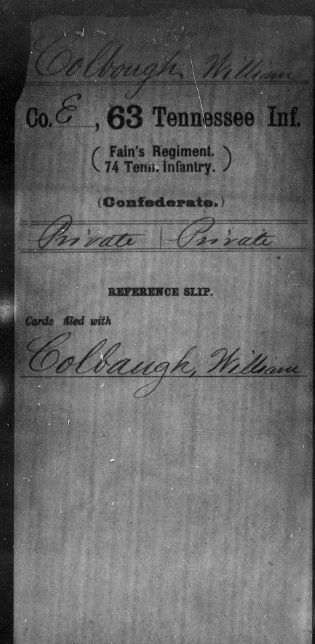 Colbough, William
Co. E, 63 Tennessee Inf.
(Fain's Regiment.
74 Tenn. Infantry.)
(Confederate.)
Private | Private
REFERENCE SLIP.
Cards filed with
Colbaugh, William